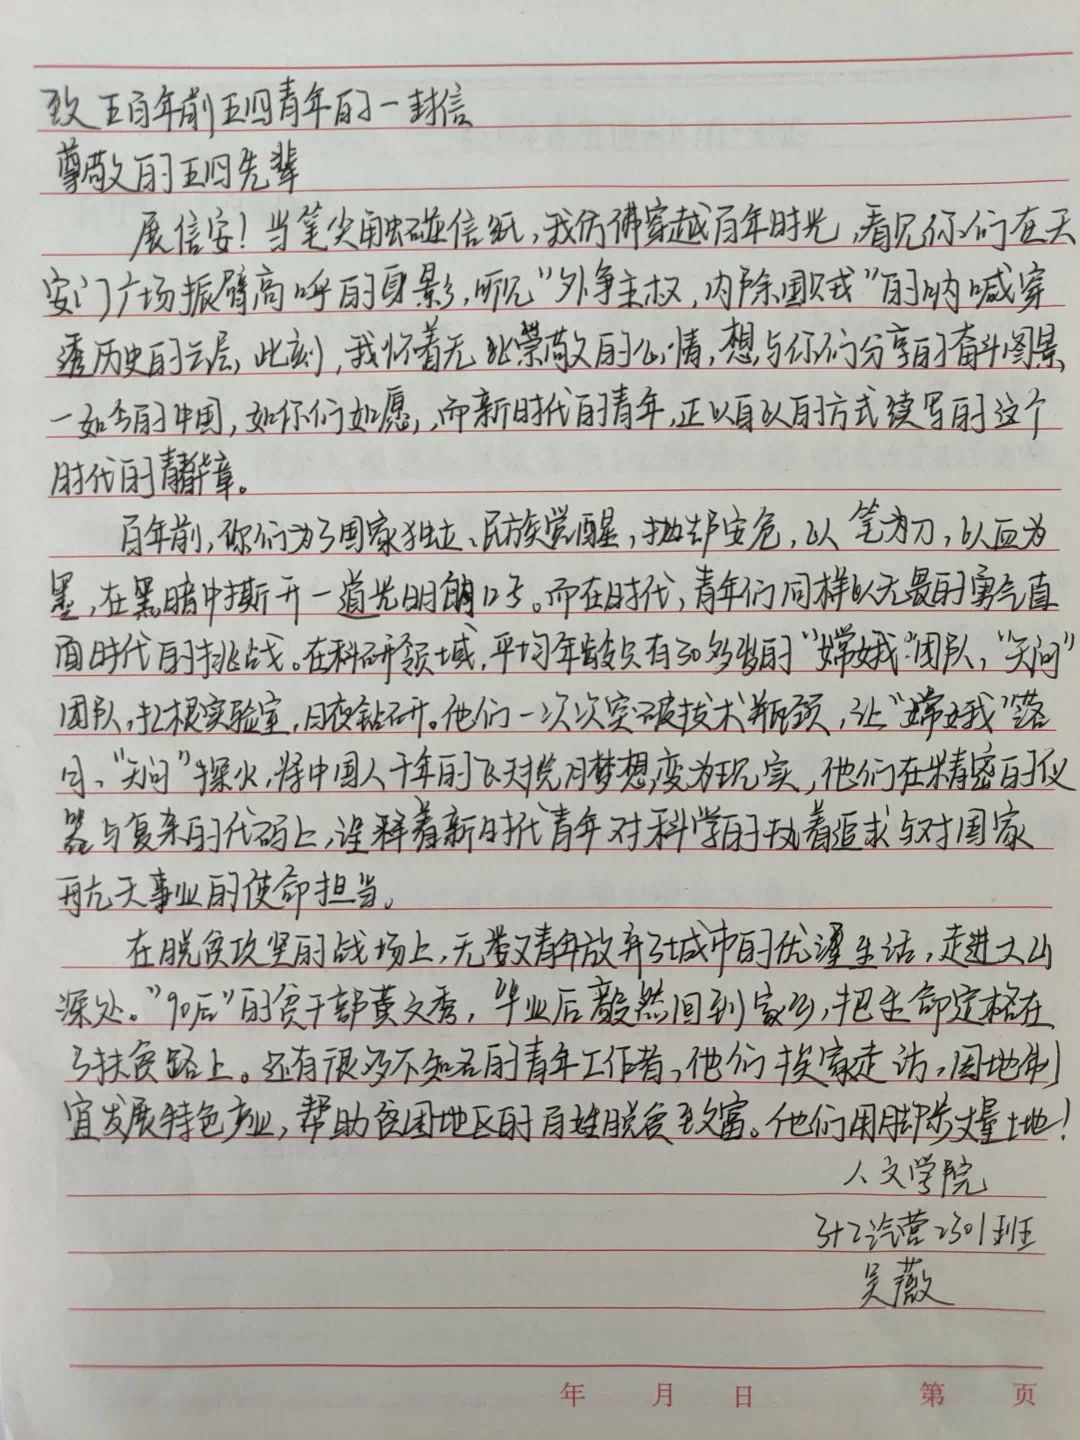 致五百年前五四青年的一封信
尊敬的五四先辈
展信安！当笔尖触碰信纸，我仿佛穿越百年时光，看见你们在天
安门广场振臂高呼的身影，听见"外争主权，内除国贼"的呐喊穿
透历史的云层，此刻，我怀着无比崇敬的心情，想与你们分享的奋斗图景
一如今的中国，如你们如愿，而新时代的青年，正以自以的方式续写的这个
时代的青春华章。
百年前，你们为了国家独立、民族觉醒，抛却安危，以笔为刀，以血为
墨，在黑暗中撕开一道光明的口子。而在时代，青年们同样以无最的勇气直
面时代的挑战。在科研领域，平均年龄只有30多岁的"嫦娥"团队，"天问"
团队，扎根实验室，日夜钻研。他们一次次突破技术瓶颈，让"嫦娥"落
月、"天问"探火，将中国人千年的飞天揽月梦想变为现实，他们在精密的仪
器与复杂的代码上，诠释着新时代青年对科学的执着追求与对国家
航天事业的使命担当。
在脱贫攻坚的战场上，无数青年放弃了城市的优渥生活，走进大山
深处。"90后"的贫干部黄文秀，毕业后毅然回到家乡，把生命定格在
了扶贫路上。还有很多不知名的青年工作者，他们挨家走访，因地制
宜发展特色产业，帮助贫困地区的百姓脱贫致富。他们用脚步丈量土地！
人文学院
3+2汽营2301班
吴薇
年 月 日 第 页